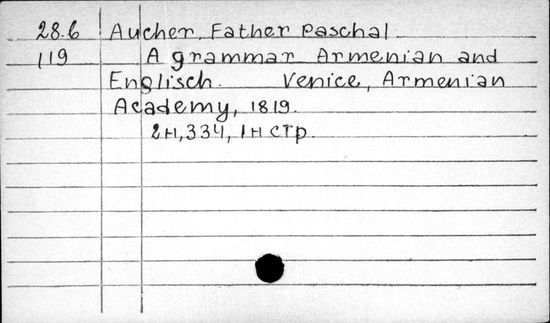 28.6 Aucher, Father Paschal
119 A grammar Armenian and
Englisch. Venice, Armenian
Academy, 1819.
2н, 334, 1н стр.